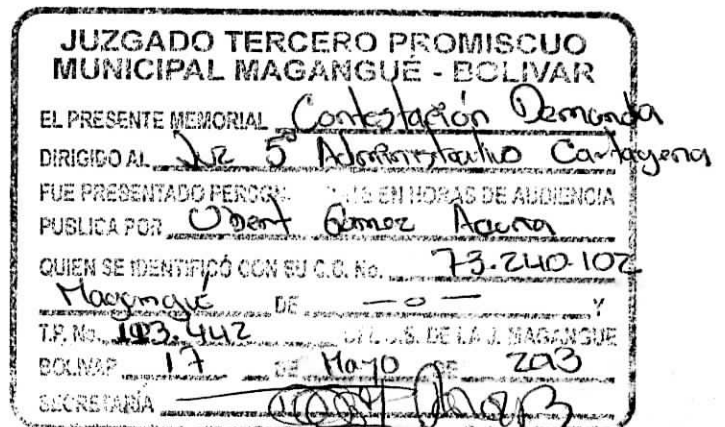 JUZGADO TERCERO PROMISCUO
MUNICIPAL MAGANGUÉ - BOLIVAR
EL PRESENTE MEMORIAL Contestación Demanda
DIRIGIDO AL Juz 5 Administrativo Cartagena
FUE PRESENTADO EN HORAS DE AUDIENCIA
PUBLICA POR Obert Gomez Acuna
QUIEN SE IDENTIFICÓ CON SU C.C. No. 73.240.102
Magangué DE —o— Y
T.P. No. 193.442 C.S. DE LA J. MAGANGUE
BOLIVAR 17 DE Mayo DE 2013
SECRETARÍA